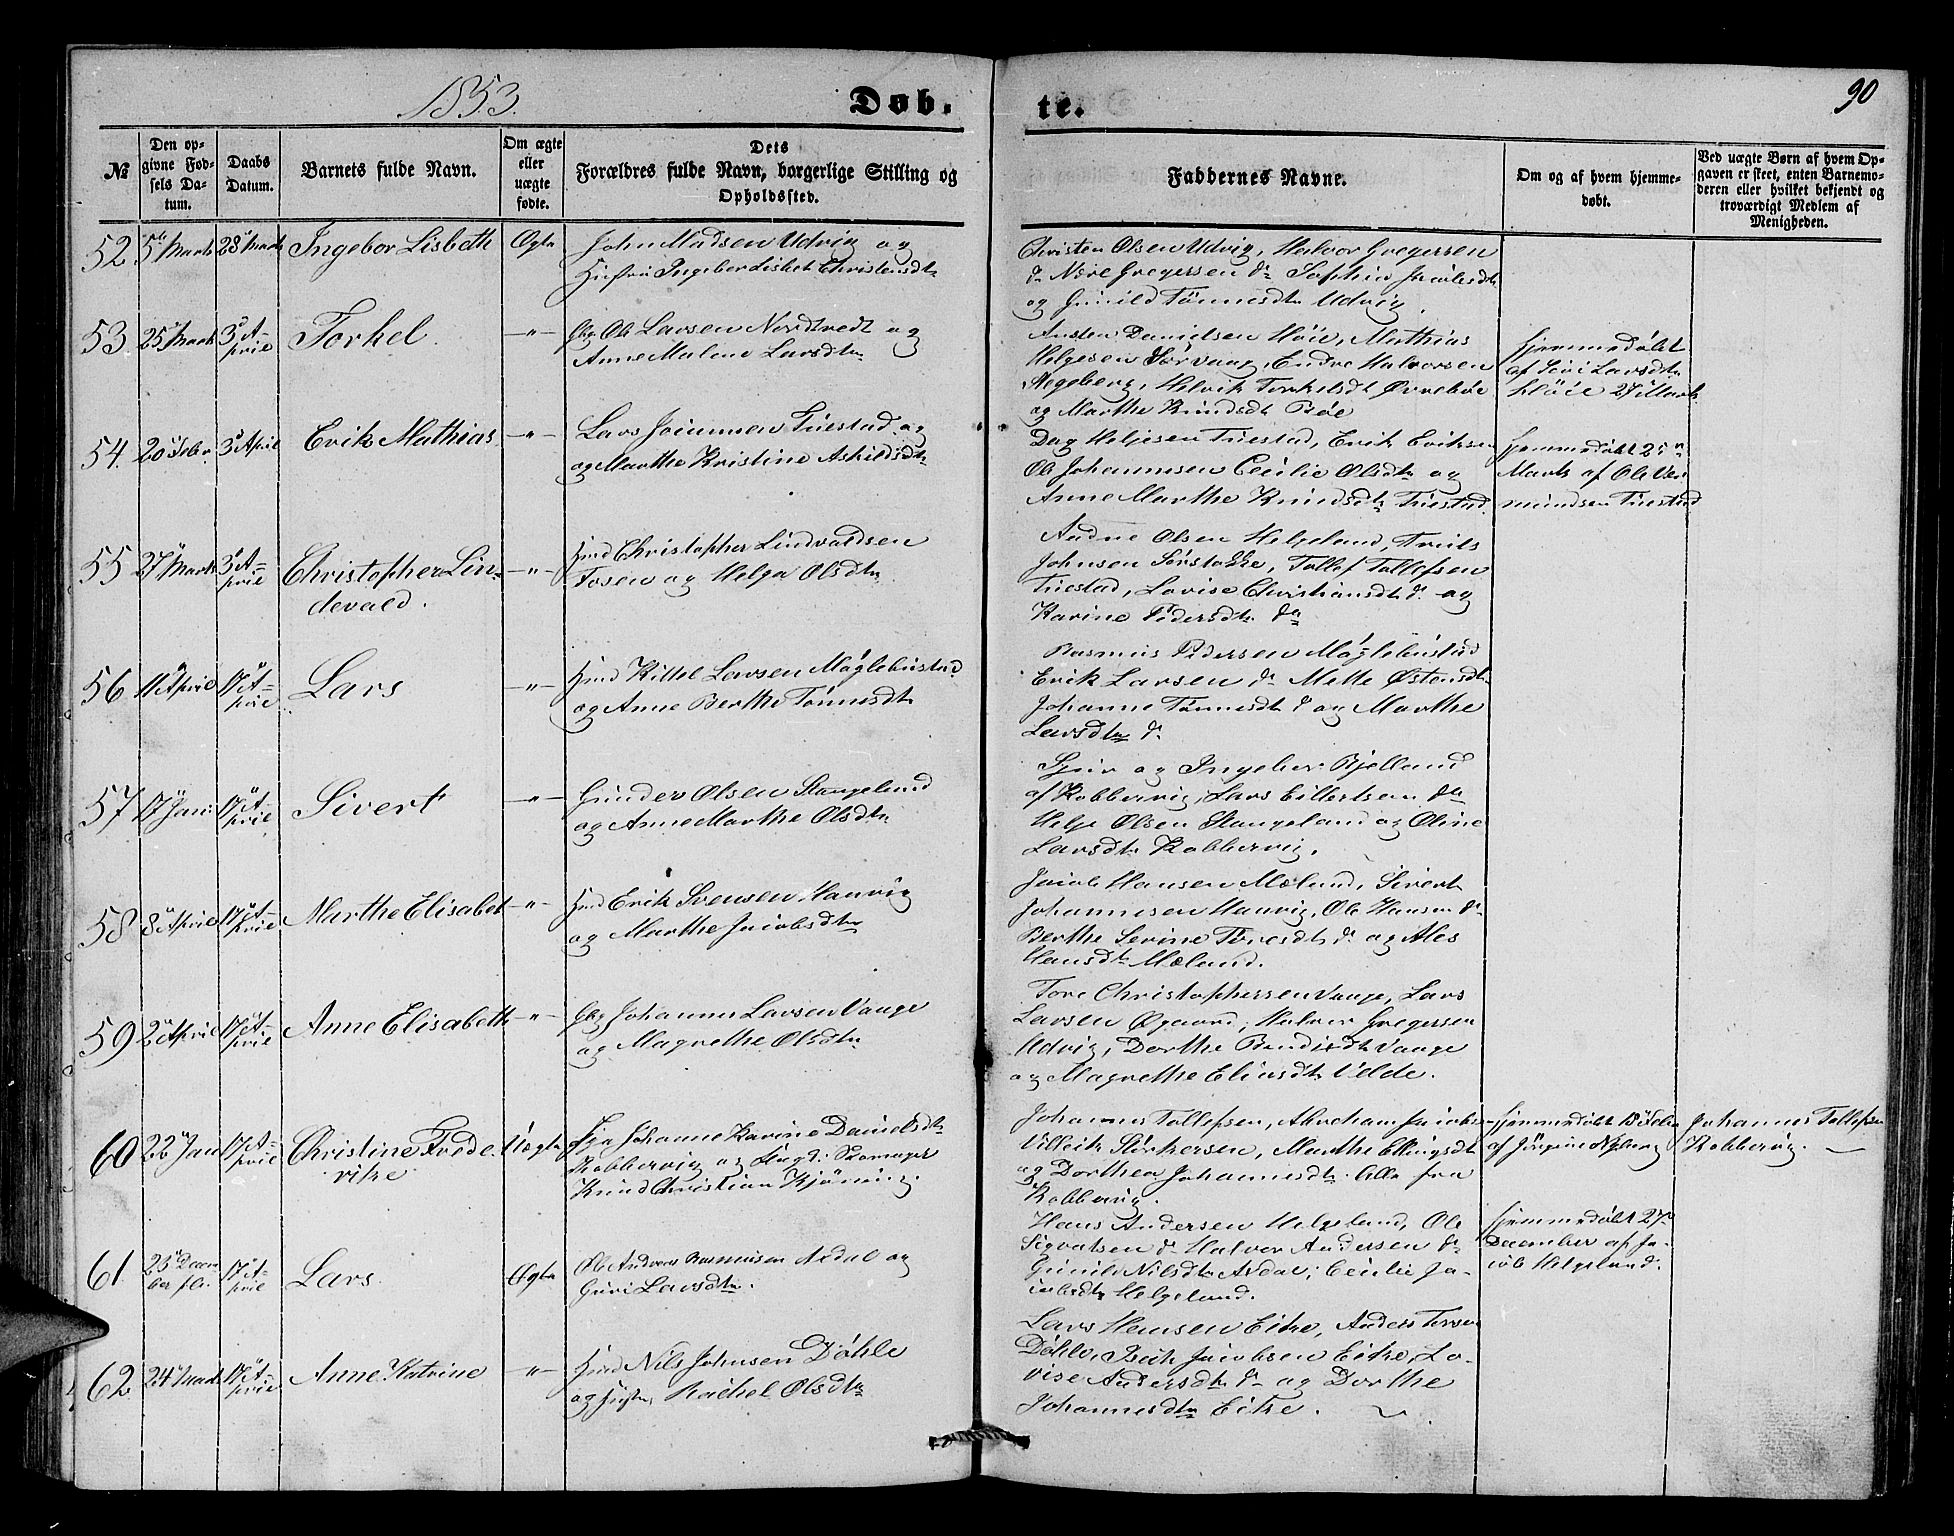 1853.
Døb.
te.
90
№
Den op-
givne Fød-
sels Da-
tum.
Daabs
Datum.
Barnets fulde Navn.
Om ægte
eller
uægte
fødte.
Dets
Forældres fulde Navn, borgerlige Stilling og
Opholdssted.
Faddernes Navne.
Om og af hvem hjemme-
døbt.
Ved uægte Børn af hvem Op-
gaven er skeet, enten Barnemo-
deren eller hvilket bekjendt og
troværdigt Medlem af
Menigheden.
52 5te Marts 28 Marts Ingebor Lisbeth Ægte John Madsen Udvig og
Hustru Ingebor Lisbet Christensdtr
Christen Olsen Udvig, Halvor Gregersen
do Nore Gregersen do Sophia Jacobsdtr
og Gunild Tønnesdtr Udvig
53 25 Marts 3 A=
pril Torkel — " — Gbr Ole Larsen Nordtvedt og
Anne Malene Larsdtr
Austen Danielsen Høie, Mathias
Helgesen Sørvaag, Endre Halvorsen
Hegeberg, Helvik Torkelsdt Øvrebøe
og Marthe Knudsdt Bøe
Hjemmedøbt
af Siri Larsdtr
Høie 27 Marts
54. 20 Febr. 3 April Erik Mathias — " — Lars Joiumsen Tuestad og
og Marthe Kristine Askildsdtr
Dag Heljesen Tuestad, Erik Eriksen
Ole Johannesen Cecilie Olsdtr og
Anne Marthe Knudsdtr Tuestad
Hjemmedøbt 25
Marts af Ole Væ
mundsen Tuestad
55 27 Marts 3 A=
pril Christopher Lin=
devald. — " — Hmd Christopher Lindvaldsen
Fosen og Helga Olsdtr
Aadne Olsen Helgeland, Truls
Johnsen Sørstokke, Tollef Tollefsen
Tuestad, Lovise Christiansdt do og
Karine Pedersdtr do
56 11 April 17 A=
pril Lars — " — Hmd Kittel Larsen Møglebustad
og Anne Berthe Tønnesdtr
Rasmus Pedersen Møglebustad
Erik Larsen do Mette Østensdtr
Johanne Tønnesdt do og Marthe
Larsdtr do
57 17 Jan: 17 A=
pril Sivert — " — Gunder Olsen Stangeland
og Anne Marthe Olsdtr
Sjur og Ingebor Bjelland
af Kobbervig, Lars Eilertsen do
Helje Olsen Stangeland og Oline
Larsdtr Kobbervig.
58 8 April 17 A=
pril Marthe Elisabet — " — Hmd Erik Svensen Hauvig
og Marthe Jacobsdtr
Jacob Hansen Mælund, Sivert
Johannesen Hauvig, Ole Hansen do
Berthe Serine Toresdt do og Ales
Hansdtr Mælund.
59 2 April 17 A=
pril Anne Elisabeth — " — Gbr Johannes Larsen Vaage
og Magrethe Olsdtr
Tore Christophersen Vaage, Lars
Larsen Øgaard, Halvor Gregersen
Udvig, Dorthe Bendixdt Vaage
og Magrethe Eliasdtr Velde.
60 22 Jan 17 A=
pril Christine Frede-
rike Uægte Pige Johanne Karine Danielsdtr
Kobbervig og Ungk.
Knud Christian Kjøning.
Johannes Tollefsen, Abraham Jacobs
Villeik Størkersen, Marthe Ellingsdt
og Dorthea Johannesdtr Alle fra
Kobbervig.
Hjemmedøbt 18 Febr
af Jørgine Nyborg
Johannes Tollefsen
Kobbervig. —
61 23 Decem
ber f. A. 17 A-
pril Lars. Ægte Ole Andreas Rasmussen Avdal og
Guri Larsdtr.
Hans Andersen Helgeland, Ole
Sigvatsen do Halvor Andersen do
Gunild Nilsdtr Avdal, Cecilie Ja-
cobsdtr Helgeland.
Hjemmedøbt 27
December af Ja-
cob Helgeland.
62 24 Marts 17 A=
pril Anne Katrine " — Hmd Nils Johnsen Døhle
og Hustru Rachel Olsdtr
Lars Hansen Eike, Anders Torsen
Døhle, Erik Jacobsen Eike, Lo-
vise Andersdtr do og Dorthe
Johannesdtr Eike.